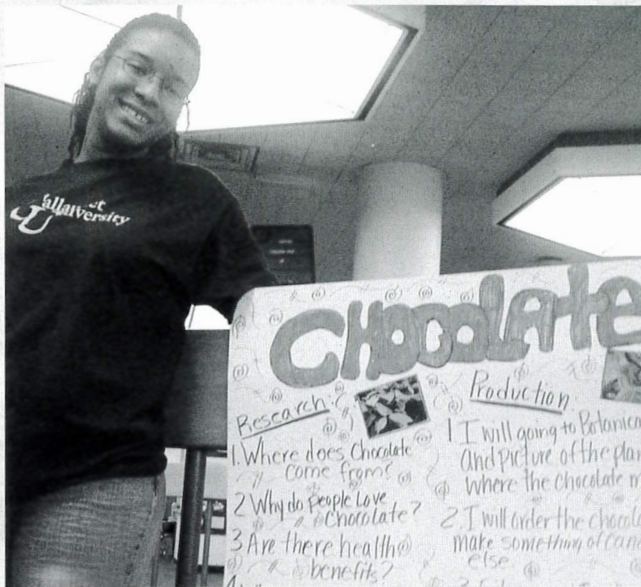 CHOCOLATE
Research:
1. Where does Chocolate
come from?
2 Why do people Love
Chocolate?
3 Are there health
benefits?
Production
1 I will going to Botanica
and picture of the plan
where the chocolate m
2. I will order the chocola
make something of can
else